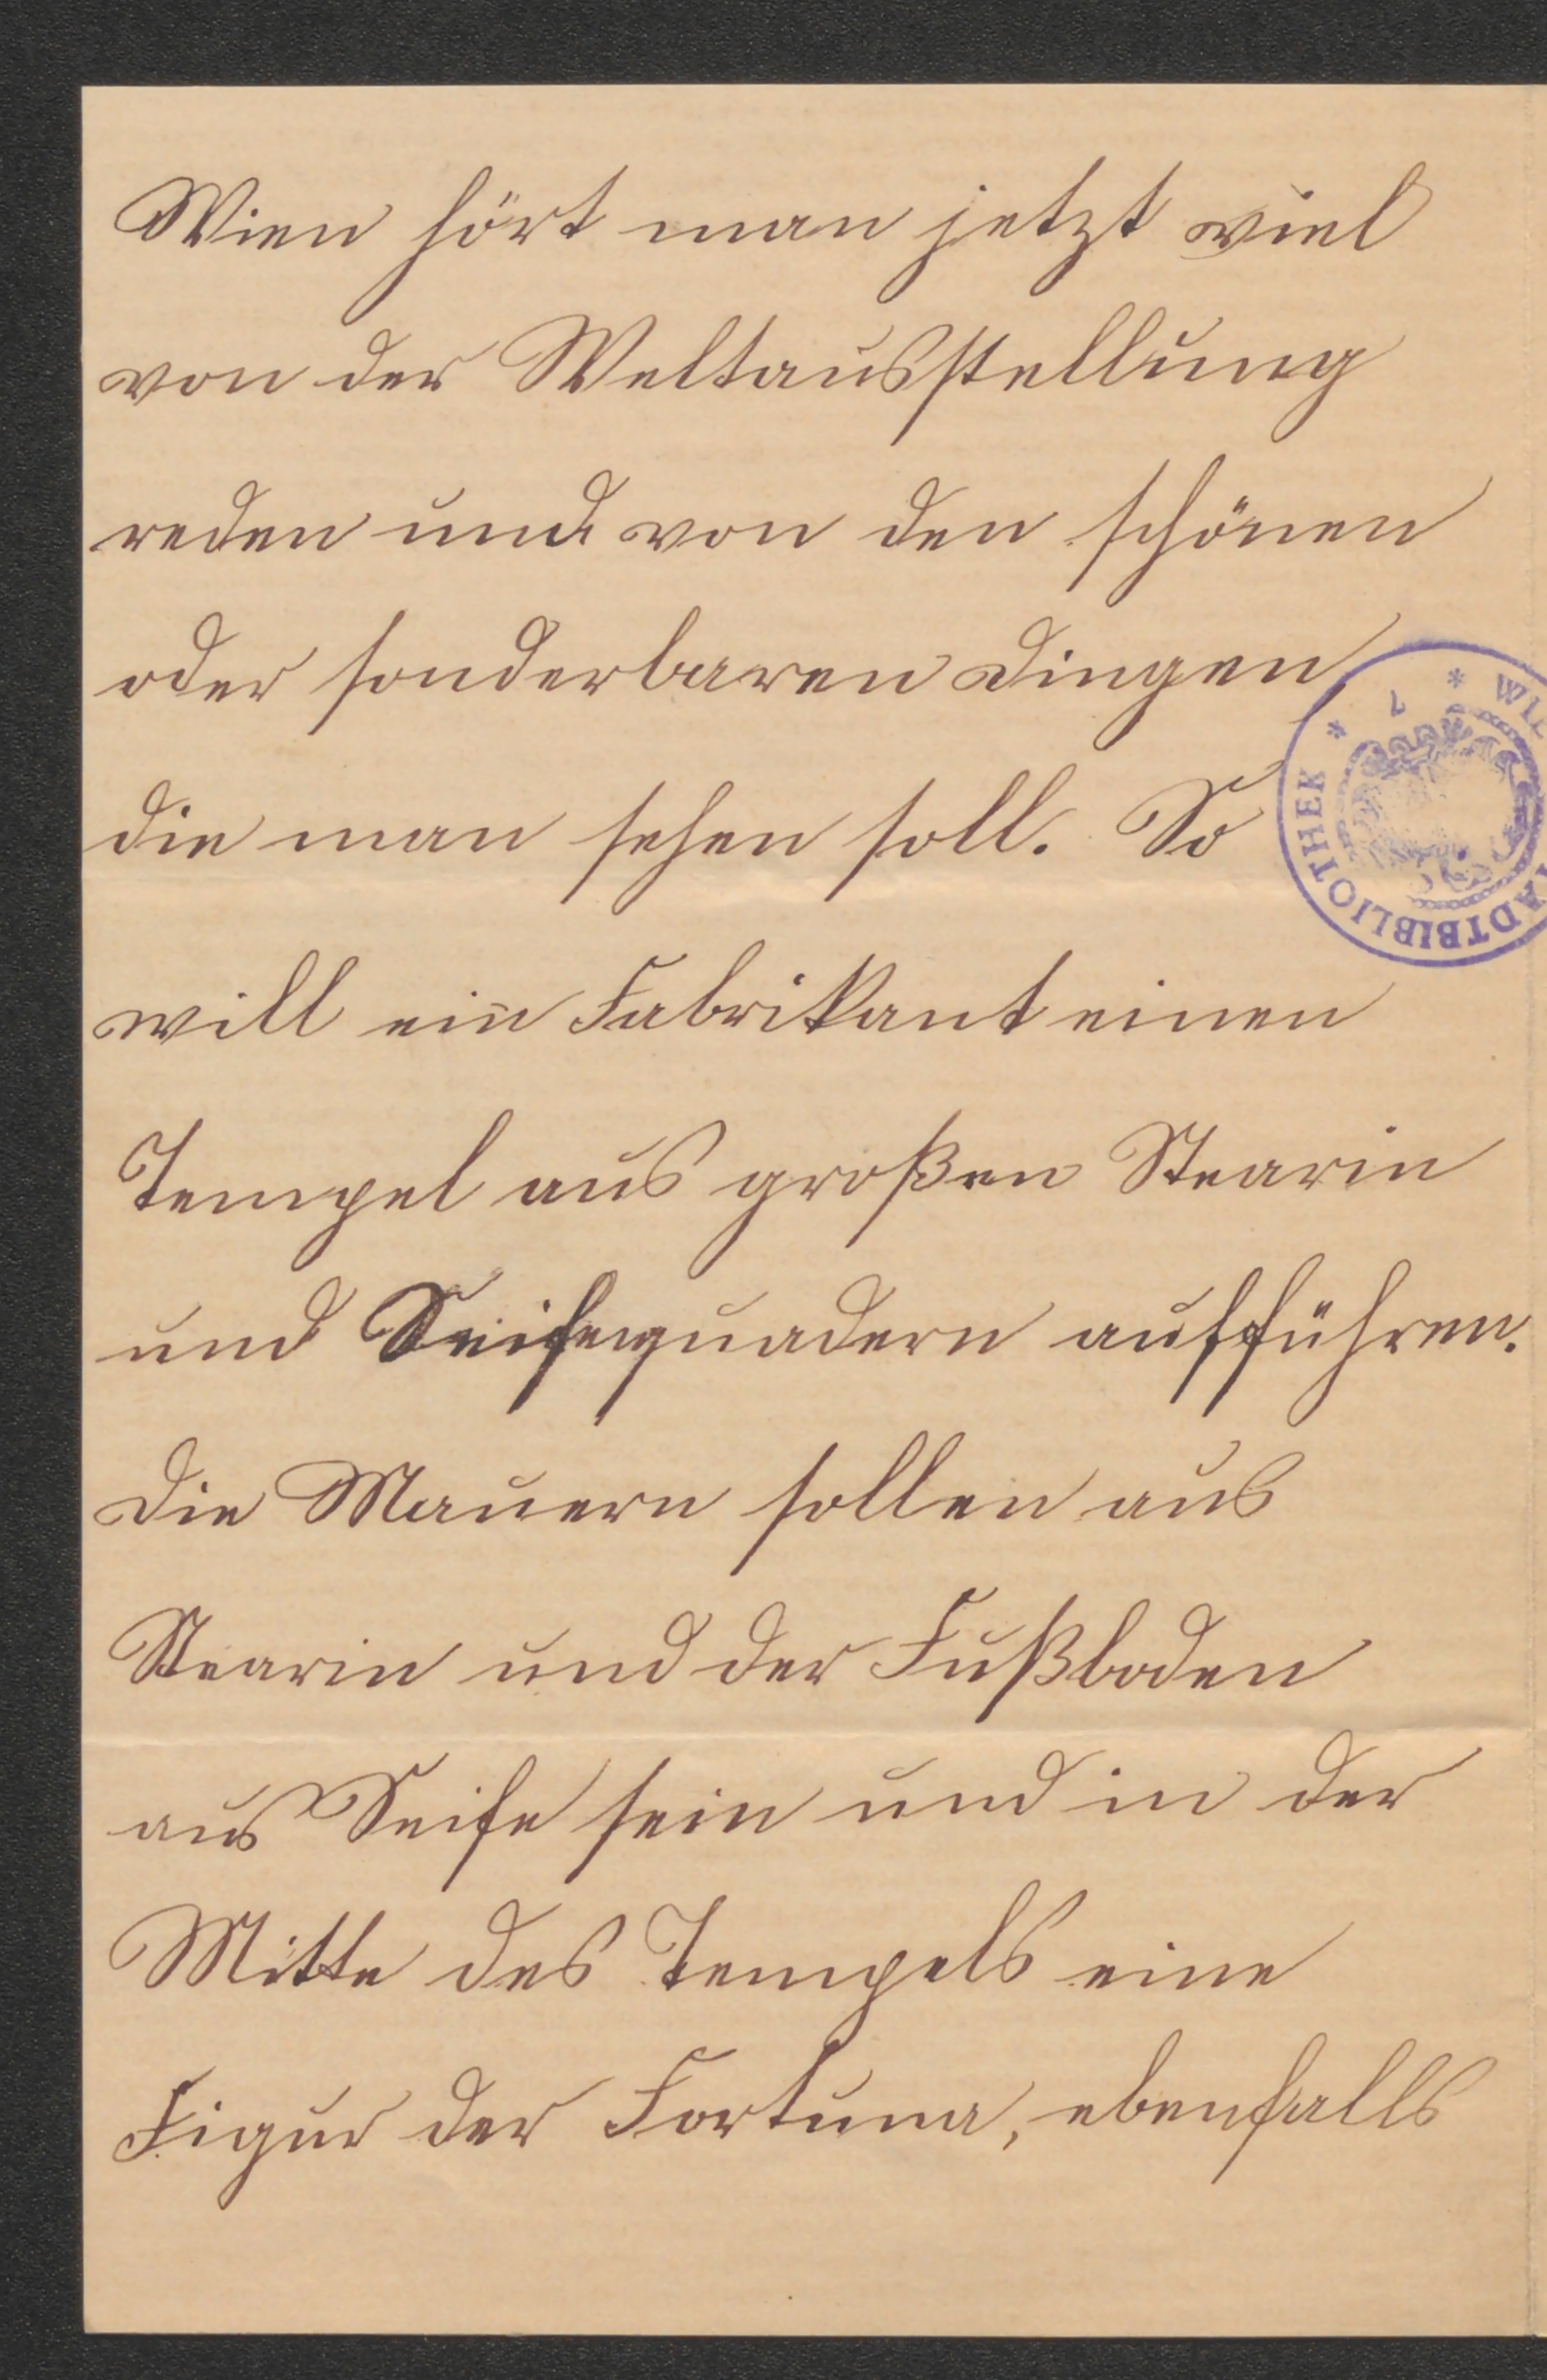 Wien hört man jetzt viel
von der Weltausstellung
reden und von den schönen
oder sonderbaren Dingen,
die man sehen soll. So
will ein Fabrikant einen
Tempel aus großen Stearin
und Seifenquadern aufführen.
Die Mauern sollen aus
Stearin und der Fußboden
aus Seife sein und in der
Mitte des Tempels eine
Figur der Fortuna, ebenfalls
* WIE
TADTBIBLIOTHEK *